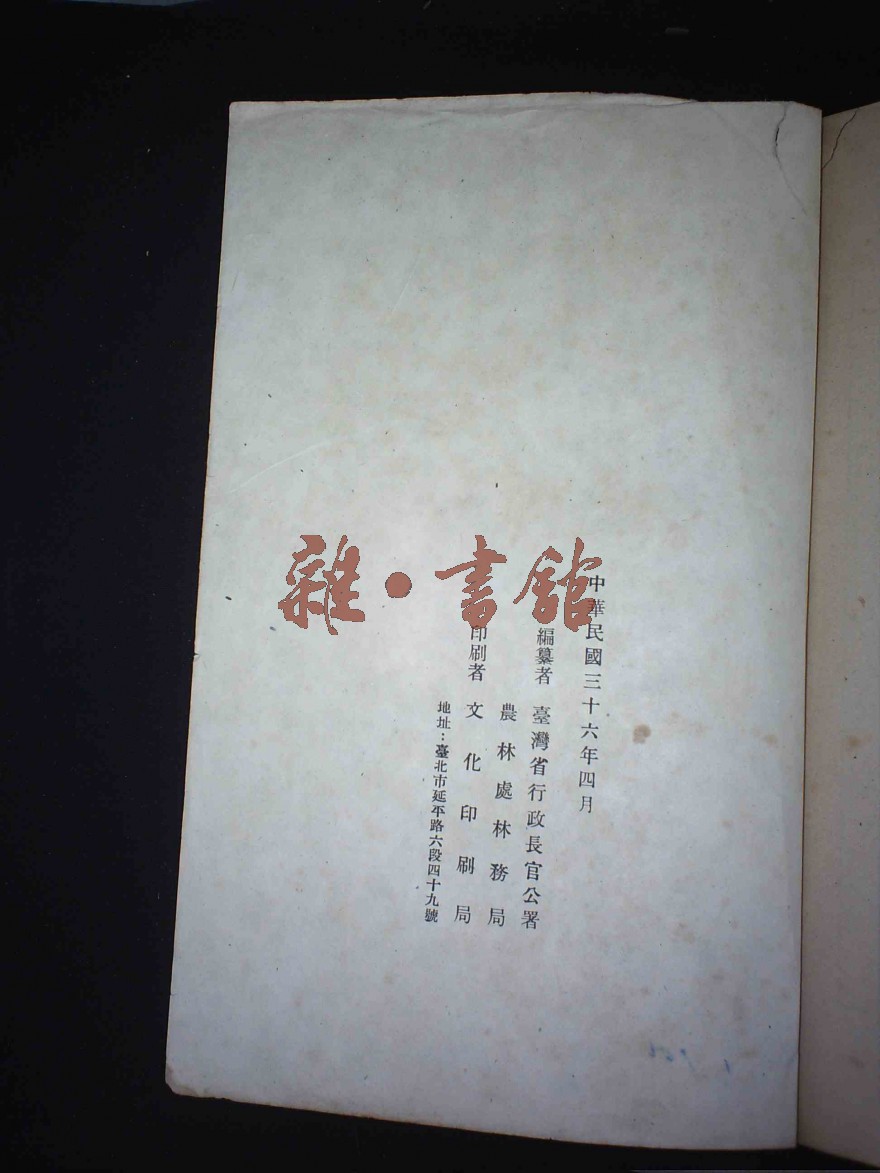 中華民國三十六年四月
編纂者 臺灣省行政長官公署
農林處林務局
印刷者 文化印刷局
地址：臺北市延平路六段四十九號
雜·書館